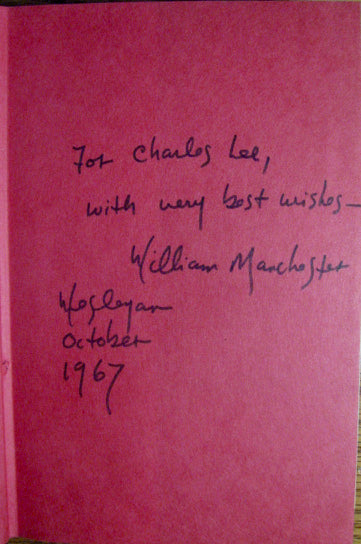 For Charles Lee,
with very best wishes—
William Manchester
Wesleyan
October
1967